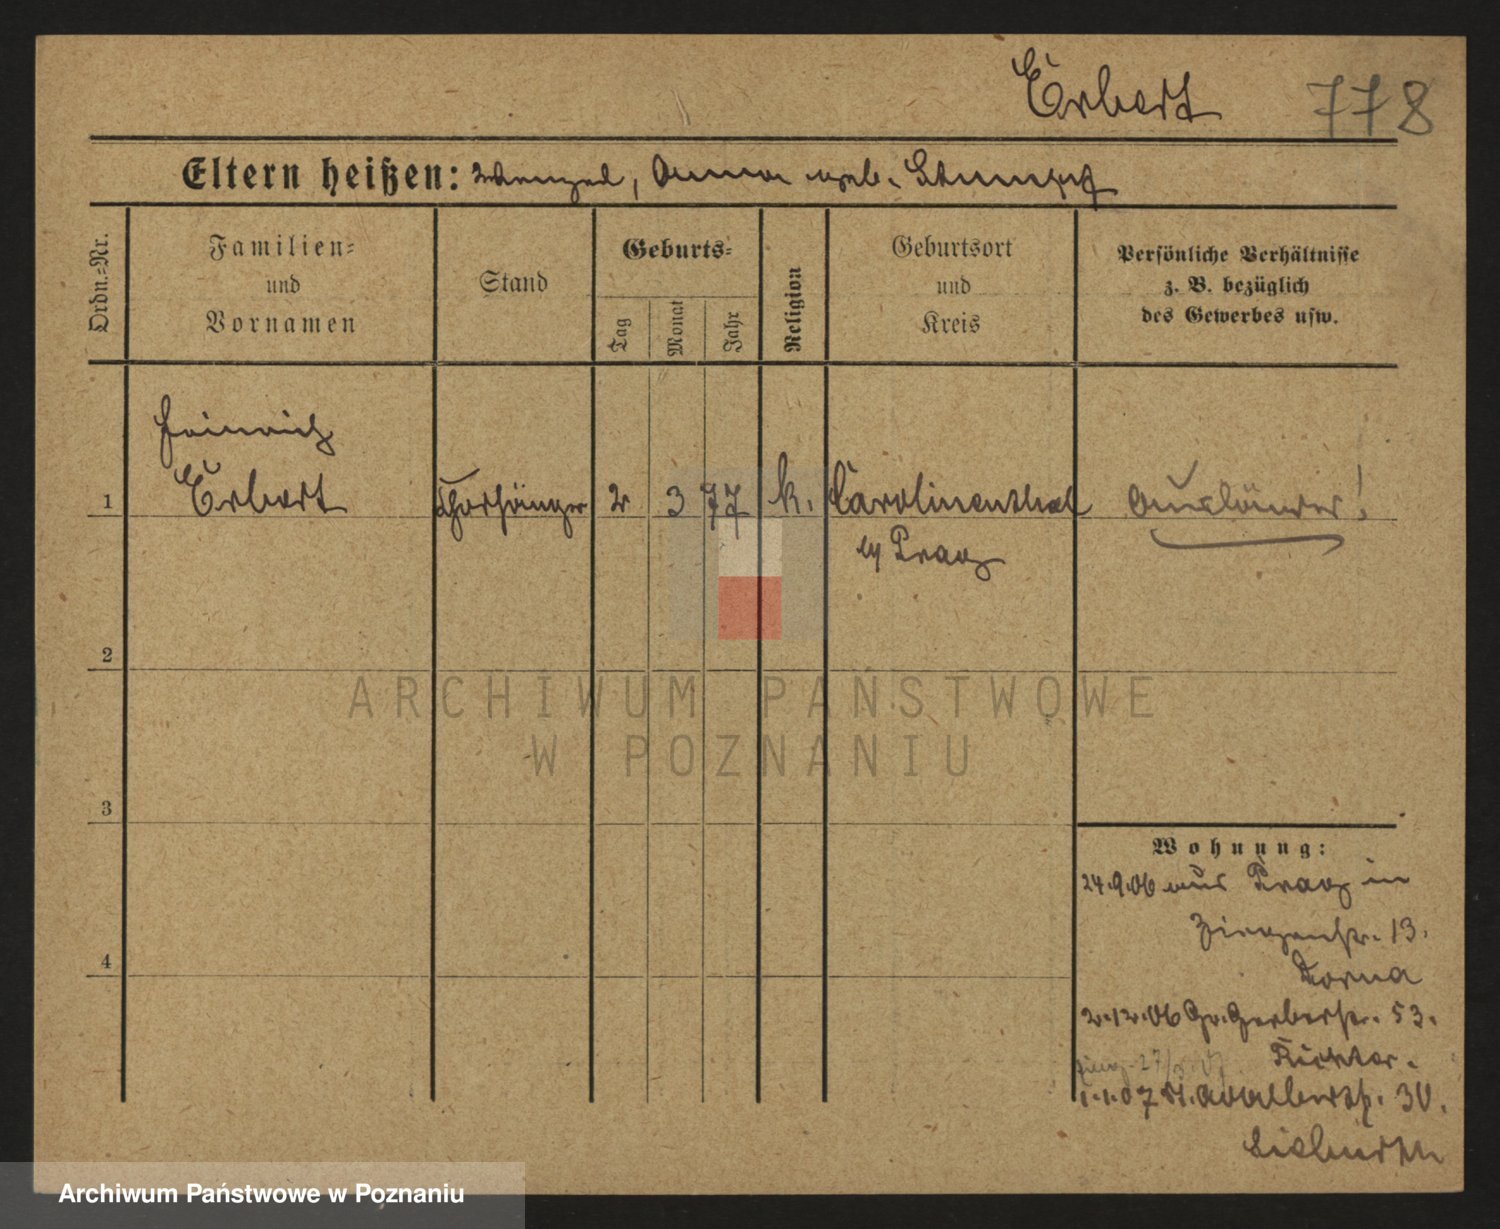 Erbert 778
Eltern heißen: Wenzel, Anna geb. Stumpf
Ordn.=Nr.
Familien=
und
Vornamen
Stand
Geburts=
Tag
Monat
Jahr
Religion
Geburtsort
und
Kreis
Persönliche Verhältnisse
z. B. bezüglich
des Gewerbes usw.
Heinrich
1 Erbert Chorsänger 2 3 77 k. Carolinenthal Ausländer!
Prag
2
3
4
ARCHIWUM PAŃSTWOWE
W POZNANIU
Wohnung:
24.9.06 aus Prag in
Ziegenstr. 13.
2.12.06 Gr. Gerberstr. 53.
Richter.
1.1.07 St. Adalbertstr. 30.
Archiwum Państwowe w Poznaniu